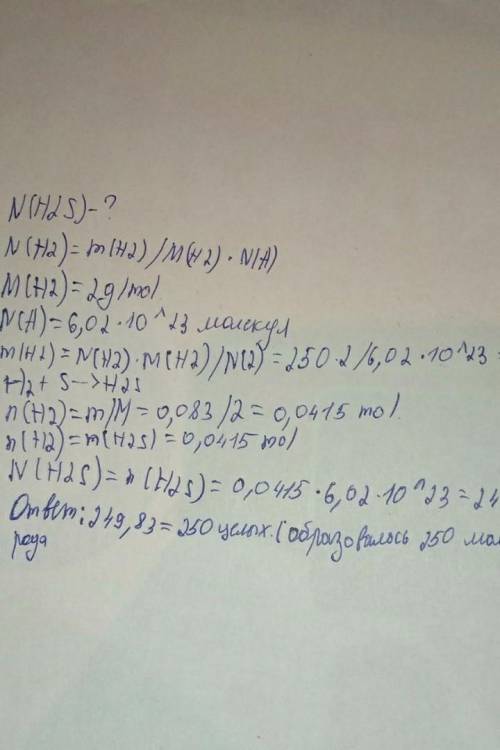 N(H2S)-?
N(H2)=m(H2)/M(H2)·N(A)
M(H2)=2g/mol
N(A)=6,02·10^23 молекул
m(H2)=N(H2)·M(H2)/N(2)=250·2/6,02·10^23=
H2+S-->H2S
n(H2)=m/M=0,083/2=0,0415 mol
n(H2)=n(H2S)=0,0415 mol
N(H2S)=n(H2S)=0,0415·6,02·10^23=24
Ответ:249,83=250 целых.(образовалось 250 мол
рода